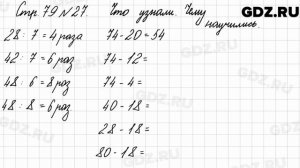 Стр. 79 №27. Что узнали. Чему научились
28 : 7 = 4 раза
42 : 7 = 6 раз
48 : 6 = 8 раз
48 : 8 = 6 раз
74 - 20 = 54
74 - 4 =
40 - 18 =
28 - 18 =
80 - 18 =
GDZ.RU
GDZ.RU
GDZ.RU
GDZ.RU